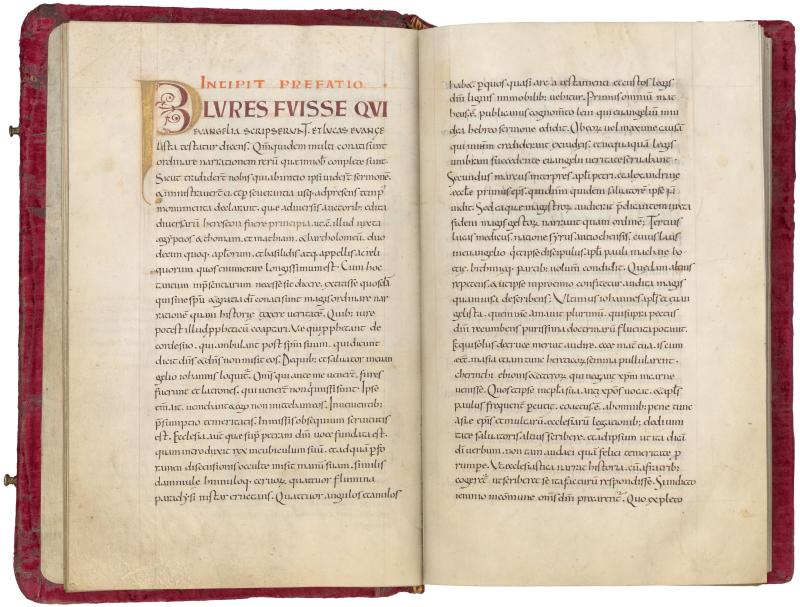 INCIPIT PREFATIO
PLVRES FVISSE QVI
EVANGELIA SCRIPSERVNT, ET LVCAS EVANGE
lista testatur dicens. Qm̄ quidem multi conati sunt
ordinare narrationem rerū quę in nob conplete sunt.
Sicut tradider̄ nobis qui ab initio ipsi vider̄ sermonē
& ministraver̄ ei. et pseverantia usq, ad presens temp
monumenta declarant. que a diversis auctorib; edita
diversarū hereseon fuere principia. ut ē illud iuxta
egyptios & thomam. et mathiam. & bartholomeū. duo
decim quoq, aptorum. et basilidis atq, appellis ac reli
quorum quos enumerare longissimum est. Cum hoc
tantum in psentiarum necesse sit dicere. extitisse quosdā
qui sine spū & gratia dī conati sunt magis ordinare nar
rationē quam historię texere veritatē. Quib; iure
potest illud ppheticū coaptari. Vę qui pphetant de
corde suo. qui ambulant post spm suum. qui dicunt
dicit dn̄s & dn̄s non misit eos. De quib; et salvator in evan
gelio iohannis loquit. Omīs qui ante me vener̄. fures
fuerunt et latrones. qui vener̄ non qui missi sunt. Ipse
enī ait. veniebant & ego non mittebam eos. In venientib;
psumptio temeritatis. In missis obsequium servitutis
est. Ecclesia aut que sup petram dnī voce fundata est.
quam introduxit rex in cubiculum suū. et ad quā p fo
ramen discensionis occulte misit manū suam. similis
dammule hinnuloq, cervorū. quattuor flumina
paradysi instar eructans. Quattuor angulos et anulos
habet. p quos quasi arca testamenti et custos legis
dnī lignis immobilib; vehitur. Primus omniū mat
heus ē. publicanus cognomto levi qui evangeliū in iu
dea hebreo sermone edidit. Ob eorū vel maxime causā
qui in ihm̄ crediderant ex iudeis. et nequaquā legis
umbram succedente evangelii veritate servabant.
Secundus marcus interpres apli petri. et alexandrine
eccle primus eps. qui dnm̄ quidem salvatorē ipse n̄
vidit. Sed ea que magistrū audierat pdicantem iuxta
fidem magis gestorū narravit quam ordinē. Tertius
lucas medicus. natione syrus antiochensis. cuius laus
in evangelio. qui et ipse discipulus apli pauli in achaie bo
etie. bithiniaq, partib; volum condidit. Quedam altius
repetens. et ut ipse in proemio confitetur. audita magis
quam visa describens. Vltimus iohannes apls et evan
gelista. quem ihs amavit plurimū. qui supra pectus
dnī recumbens purissima doctrinarū fluenta potavit.
Et qui solus de cruce meruit audire. ecce mat tua. is cum
eēt in asia et iam tunc hereticorū semina pullularent.
cherinthi. ebionis et ceterorū qui negant xpm in carne
venisse. Quos et ipse in epla sua antixpos vocat. et apls
paulus frequent pcutit. coactus ē. ab omnib; pene tunc
asie epis et multarū ecclesiarū legationib; de divini
tate salvatoris altius scribere. et ad ipsum ut ita dicā
dī verbum. non tam audaci quā felici temeritate p
rumpe. Vt ecclesiastica narrat historia. cū a fratrib;
coget ut scriberet se ita facturū respondisse. Si indicto
ieiunio in commune. om̄s dm̄ precarent. Quo expleto